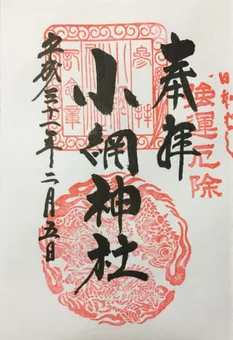 奉拝
強運厄除
小網神社
参拝
記念章
平成三十一年二月五日